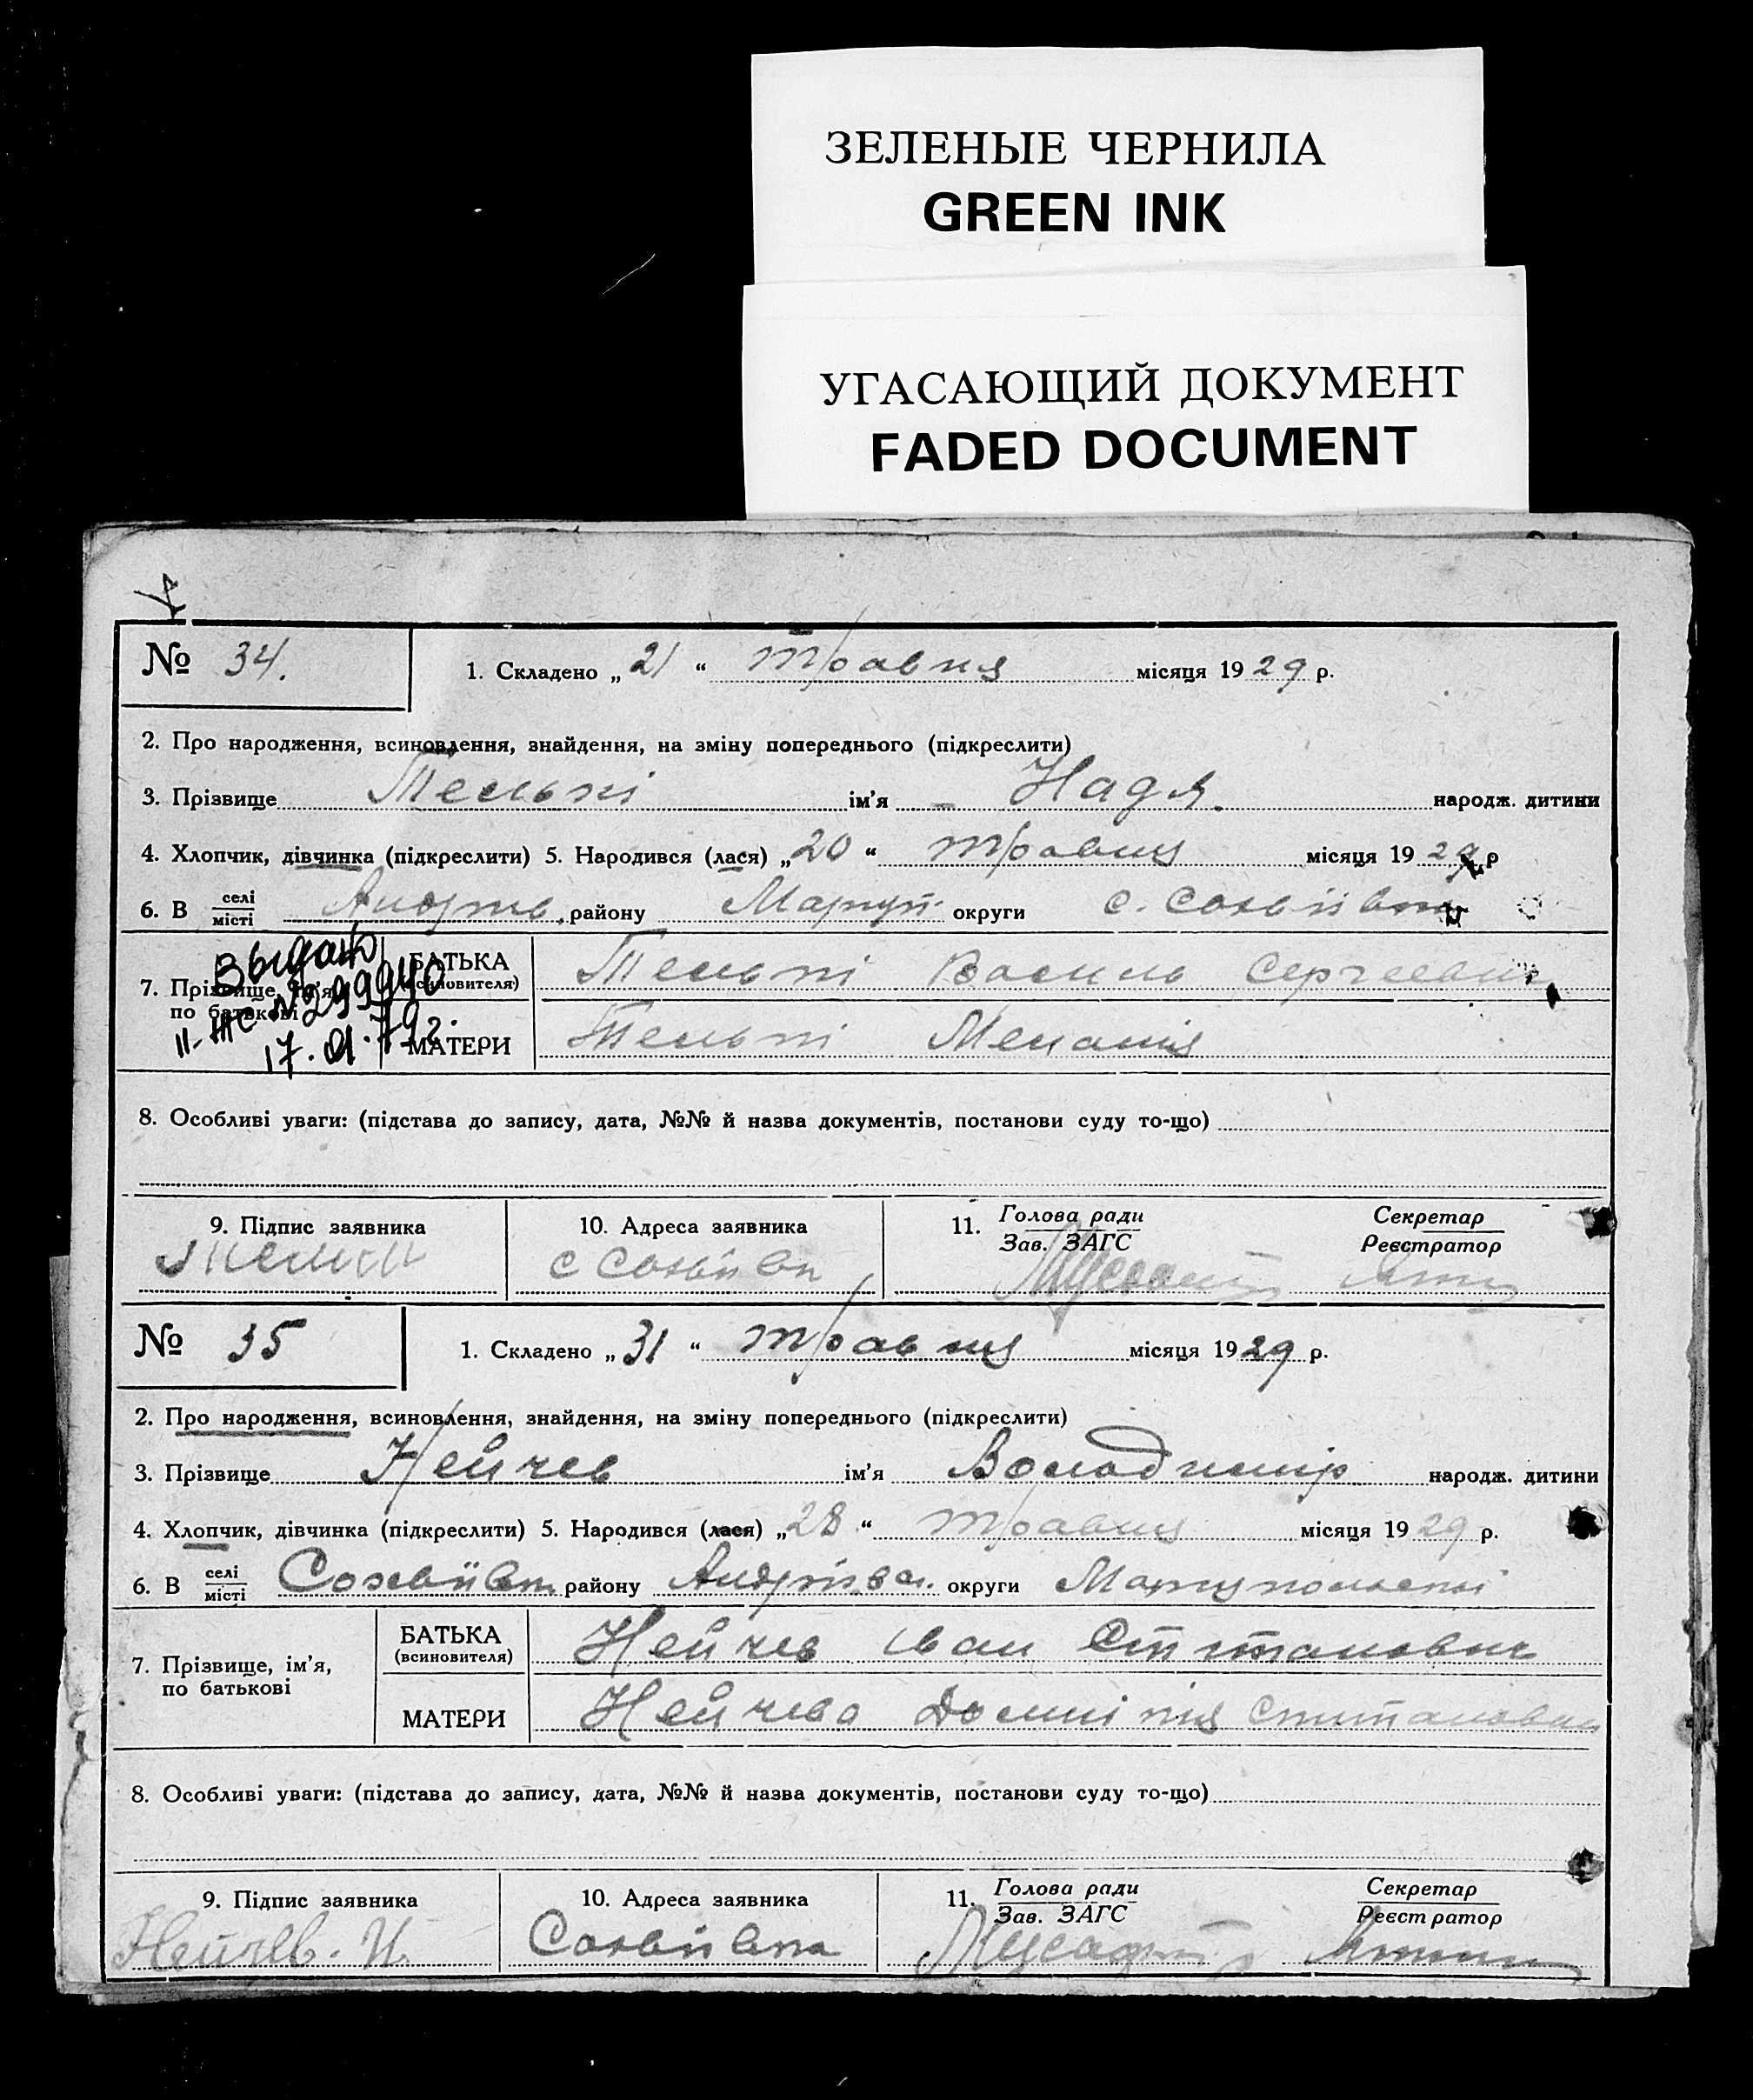 ЗЕЛЕНЫЕ ЧЕРНИЛА
GREEN INK
УГАСАЮЩИЙ ДОКУМЕНТ
FADED DOCUMENT
№ 34. 1. Складено „21“ травня місяця 1929 р.
2. Про народження, всиновлення, знайдення, на зміну попереднього (підкреслити)
3. Прізвище Тельпі ім'я Надя. народж. дитини
4. Хлопчик, дівчинка (підкреслити) 5. Народився (лася) „20“ травня місяця 1929 р
6. В селі/місті Андрпв. району Маріуп. округи с.
7. Прізвище, ім'я, по батькові
БАТЬКА (всиновителя) Тельпі Василь Сергеевич
МАТЕРИ Тельпі Меланія
Выдано
II-ЖС №299940
17.01.79г.
8. Особливі уваги: (підстава до запису, дата, №№ й назва документів, постанови суду то-що)
9. Підпис заявника 10. Адреса заявника 11. Голова ради Секретар
Зав. ЗАГС Реєстратор
№ 35 1. Складено „31“ травня місяця 1929 р.
2. Про народження, всиновлення, знайдення, на зміну попереднього (підкреслити)
3. Прізвище Нейчев ім'я Володимир народж. дитини
4. Хлопчик, дівчинка (підкреслити) 5. Народився (лася) „28“ травня місяця 1929 р.
6. В селі/місті району Андріівск. округи Маріупольскі
7. Прізвище, ім'я, по батькові
БАТЬКА (всиновителя) Нейчев Іван Стптанович
МАТЕРИ Нейчева
8. Особливі уваги: (підстава до запису, дата, №№ й назва документів, постанови суду то-що)
9. Підпис заявника 10. Адреса заявника 11. Голова ради Секретар
Зав. ЗАГС Реєстратор
Нейчев. И.